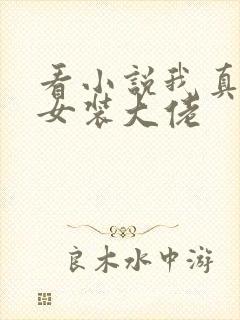 看小説我真
女装大佬
良木水中游